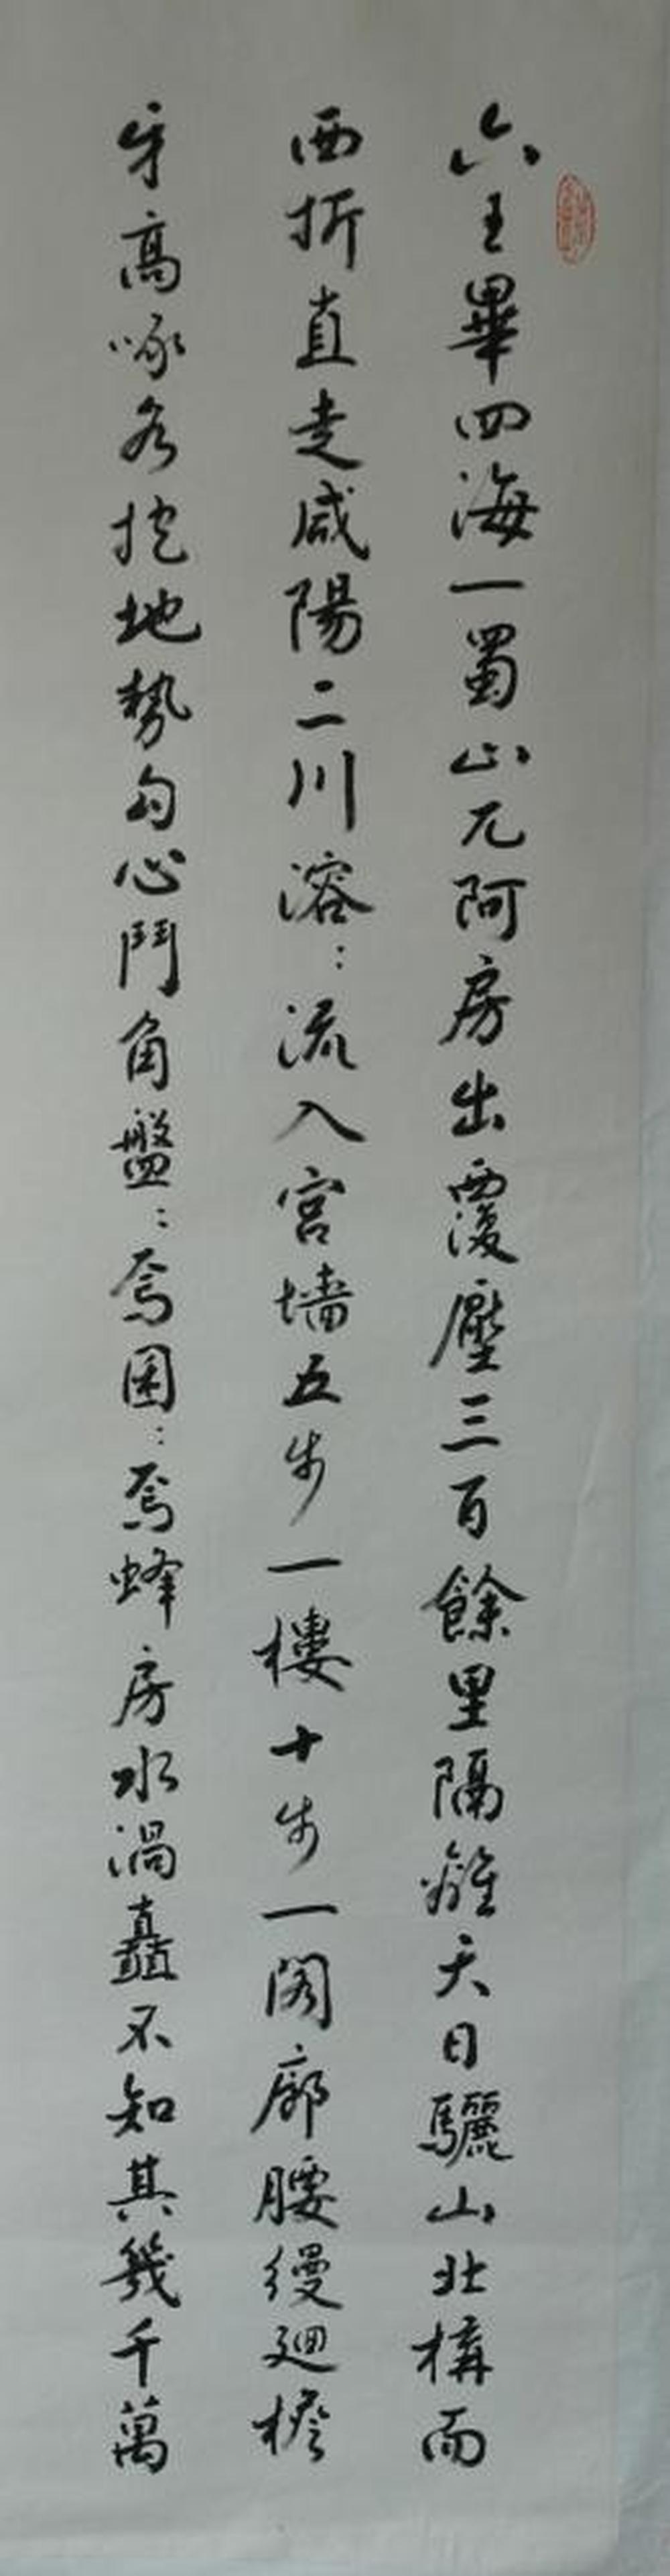 六王畢四海一蜀山兀阿房出覆壓三百餘里隔離天日驪山北構而
西折直走咸陽二川溶:流入宮墙五步一樓十步一閣廊腰縵廻檐
牙高啄各抱地勢勾心鬥角盤:焉囷:焉蜂房水渦矗不知其幾千萬